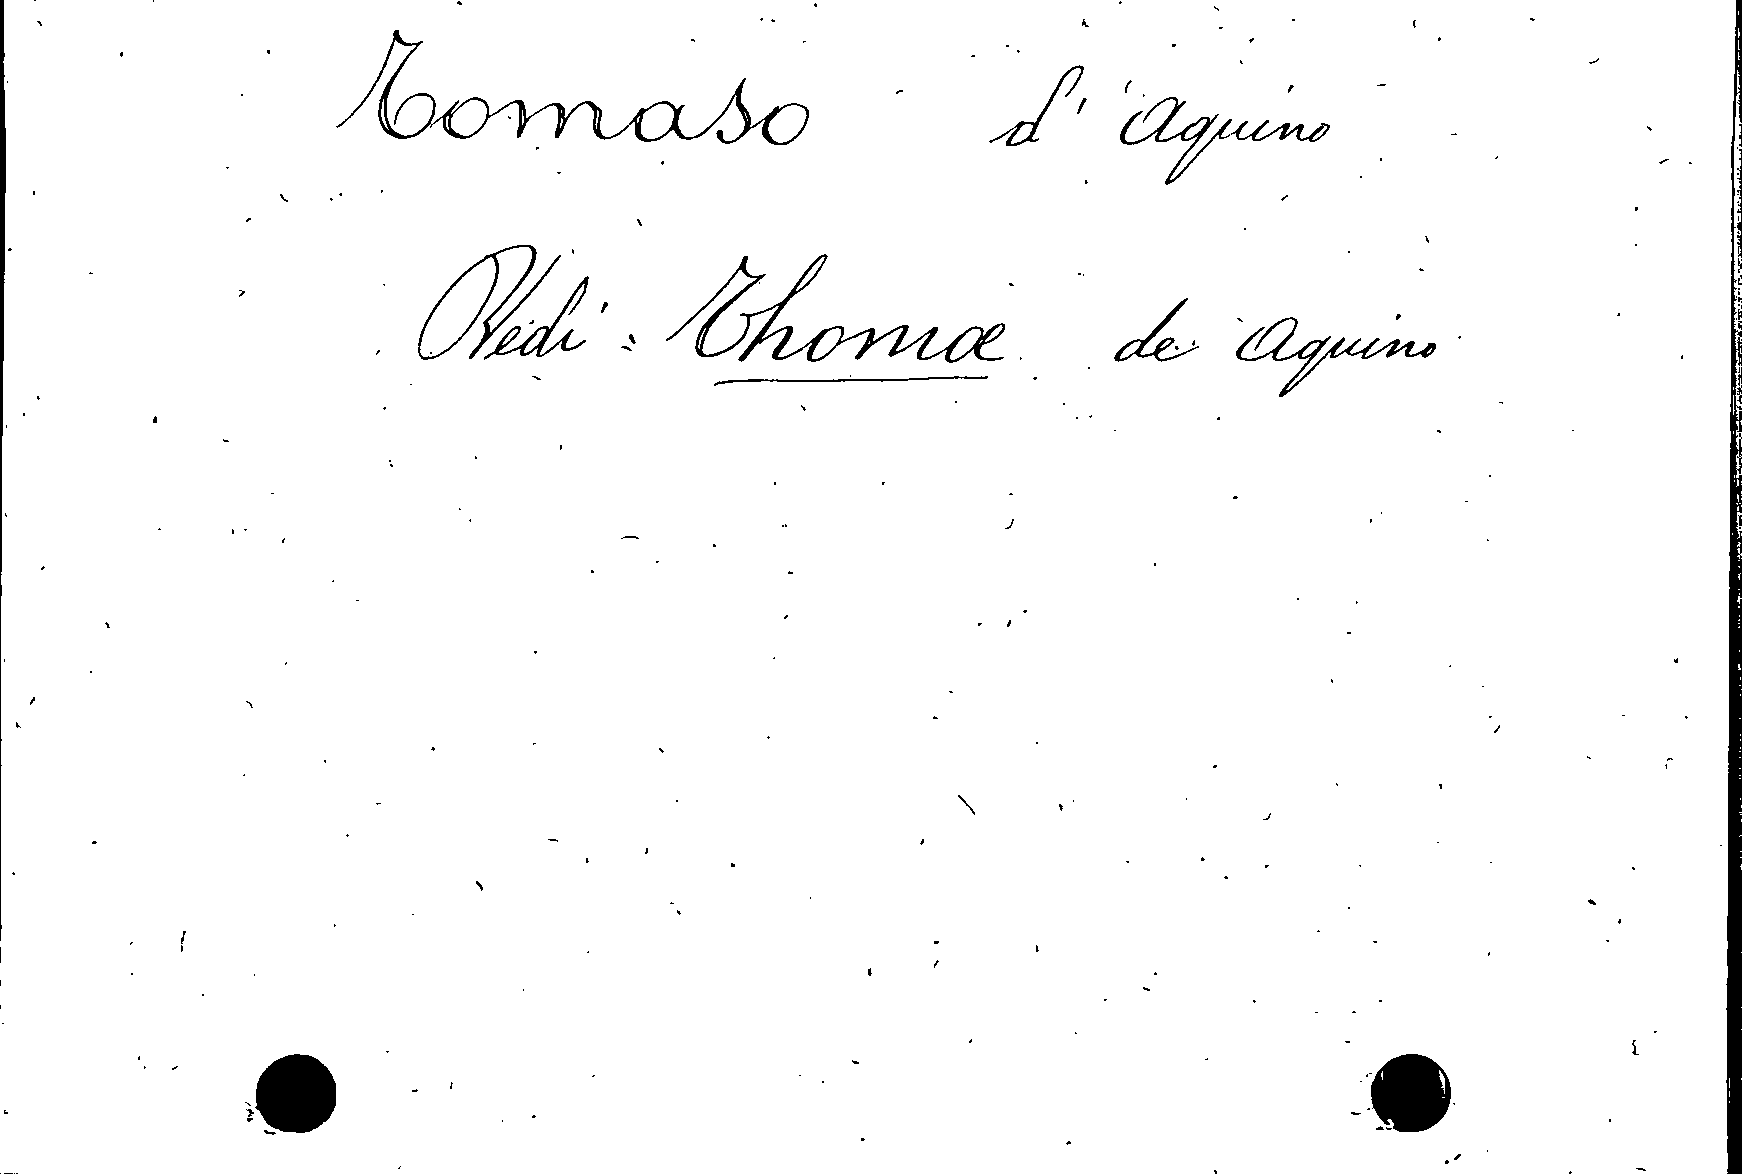 Tomaso d' Aquino
Vedi: Thomæ de Aquino